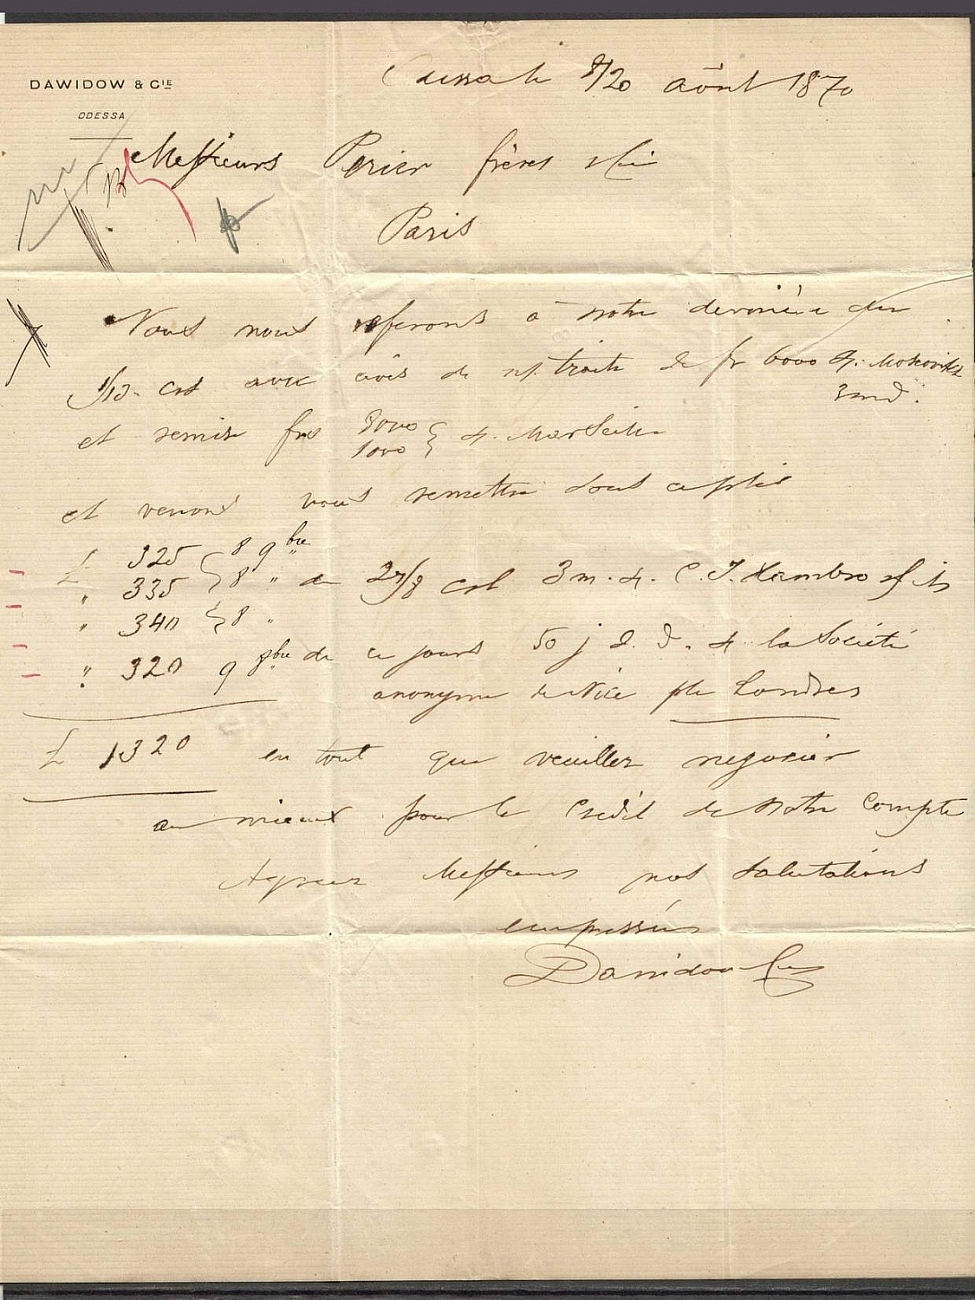 DAWIDOW & CIE
ODESSA
Odessa le 8/20 août 1870
Messieurs Perier frères & Cie
Paris
Nous nous referons à notre dernière du
1/13 ct avec avis de n/ traite de fr 6000
et remise frs 3000
1000 Marseille
et venons vous remettre sous ce pli
£ 325 8 9bre
" 335 8 " de 27/8 ct 3 m. C. J. Hambro & fils
" 340 8 "
" 320 9 8bre de ce jours 50 j d. d. la Société
anonyme de Nice Londres
£ 1320 en tout que veuillez negocier
au mieux pour le Crédit de notre Compte
Agreez Messieurs nos salutations
empressées
Dawidow & Cie